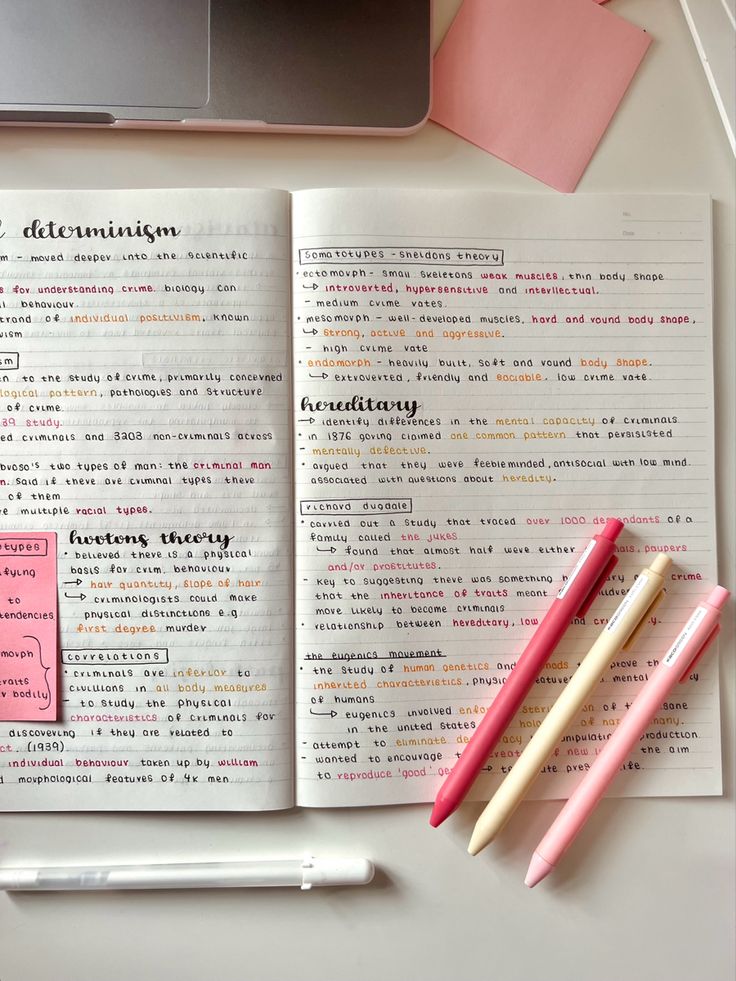 determinism
m - moved deeper into the scientific
s for understanding crime. biology can
l behaviour.
trand of individual positivism, known
vism
sm
n to the study of crime, primarily concerned
ological pattern, pathologies and structure
of crime.
39 study.
ed criminals and 3203 non-criminals across
broso's two types of man: the criminal man
n. said if there are criminal types there
of them
re multiple racial types.
otypes
ifying
to
tendencies
morph
traits
r bodily
hootons theory
• believed there is a physical
basis for crim. behaviour
→ hair quantity, slope of hair
↳ criminologists could make
physical distinctions e.g
first degree murder
correlations
• criminals are inferior to
civillions in all body measures
- to study the physical
characteristics of criminals for
discovering if they are related to
ct. (1939)
individual behaviour taken up by william
d morphological features of 4k men
No.
Date
somatotypes - sheldons theory
• ectomorph - small skeletons weak muscles, thin body shape
↳ introverted, hypersensitive and interllectual.
- medium crime rates.
• mesomorph - well-developed muscles, hard and round body shape,
↳ strong, active and aggressive.
- high crime rate
• endomorph - heavily built, soft and round body shape.
↳ extroverted, friendly and sociable. low crime rate.
hereditary
→ identify differences in the mental capacity of criminals
• in 1876 goring claimed one common pattern that persisted
- mentally defective.
• argued that they were feebleminded, antisocial with low mind.
associated with questions about heredity.
richard dugdale
• carried out a study that traced over 1000 descendents of a
family called the jukes
↳ found that almost half were either paupers
and/or prostitutes.
- key to suggesting there was something crime
that the inheritance of traits meant
more likely to become criminals
• relationship between hereditary, low
the eugenics movement
• the study of human genetics and prove the
inherited characteristics, mental
of humans
↳ eugenics involved of the insane
in the united states of
- attempt to eliminate production
- wanted to encourage the aim
to reproduce 'good' life.